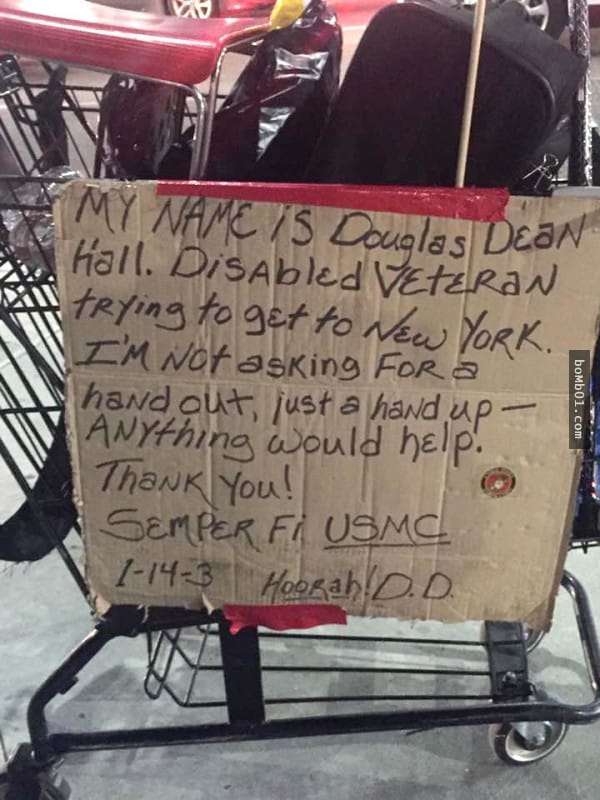 MY NAME iS Douglas DEAN
Hall. DiSAblEd VEtERAN
tRYing to gEt to NEW YORK.
I'M Not asking FOR a
hand out, just a hand up —
ANYthing would help.
ThaNK You!
SEMPER Fi USMC
1-14-3 HooRah! D.D.
boMb01.com